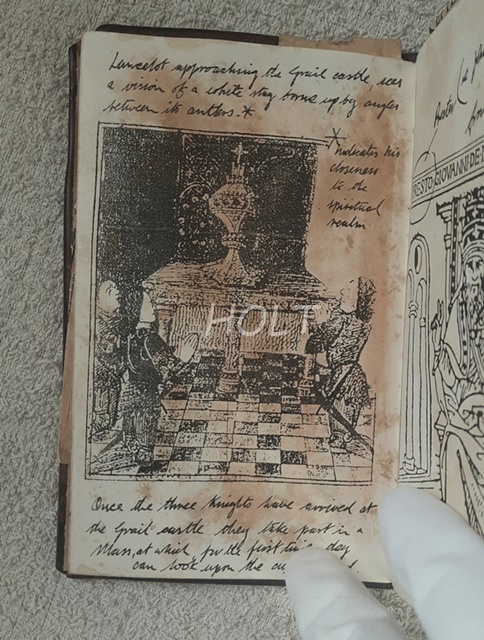 Lancelot approaching the Grail castle, sees
a vision of a white stag borne up by angles
between its antlers.*
*Indicates his
closeness
to the
spiritual
realm
HOLT
Once the three Knights have arrived at
the Grail castle they take part in a
Mass, at which, for the first time, day
can look upon the
ESTO GIOVANNI DE